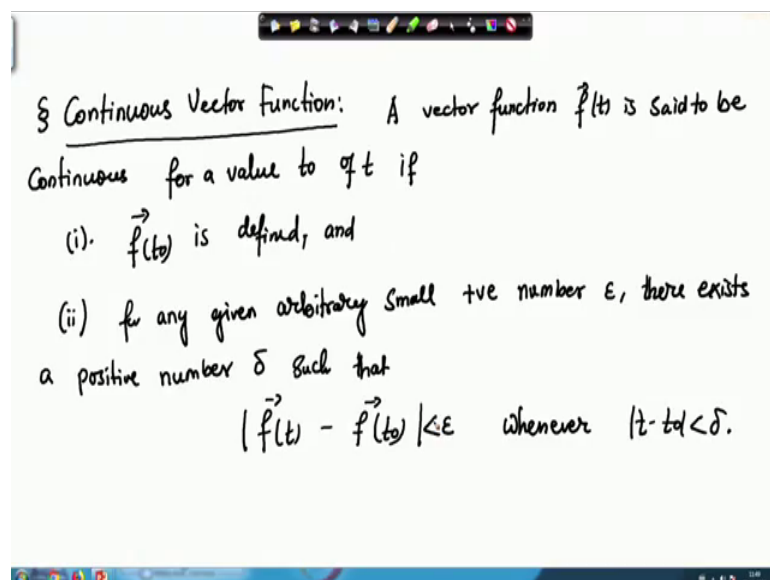 § Continuous Vector Function: A vector function f⃗(t) is said to be
Continuous for a value t₀ of t if
(i). f⃗(t₀) is defined, and
(ii) for any given arbitrary small +ve number ε, there exists
a positive number δ such that
|f⃗(t) - f⃗(t₀)| < ε whenever |t - t₀| < δ.